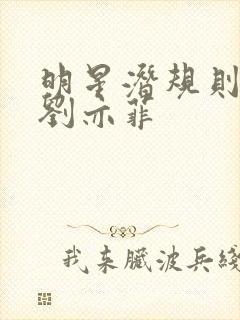 明星潛規則
劉亦菲
我来臧波兵綫